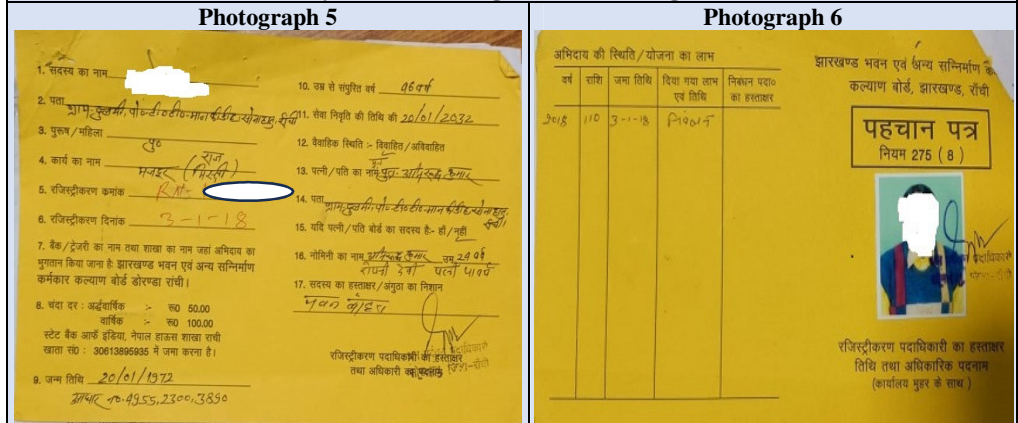 Photograph 5
1. सदस्य का नाम
2. पता ग्राम
3. पुरूष / महिला पु०
4. कार्य का नाम मजदूर (राज मिस्त्री)
5. रजिस्ट्रीकरण क्रमांक
6. रजिस्ट्रीकरण दिनांक 3-1-18
7. बैंक / ट्रेजरी का नाम तथा शाखा का नाम जहां अभिदाय का
भुगतान किया जाना हैः झारखण्ड भवन एवं अन्य सन्निर्माण
कर्मकार कल्याण बोर्ड डोरण्डा रांची।
8. चंदा दर : अर्द्धवार्षिक :- रू0 50.00
वार्षिक :- रू0 100.00
स्टेट बैंक आर्फ इंडिया, नेपाल हाऊस शाखा रांची
खाता सं0 : 30613895935 में जमा करना है।
9. जन्म तिथि 20/01/1972
आधार no. 4955,2300,3890
10. उम्र से संपुरित वर्ष 46 वर्ष
11. सेवा निवृति की तिथि की 20/01/2032
12. वैवाहिक स्थिति :- विवाहित / अविवाहित
13. पत्नी / पति का नाम
14. पता ग्राम
15. यदि पत्नी / पति बोर्ड का सदस्य है:- हाँ / नहीं
16. नोमिनी का नाम उम्र 24 वर्ष
17. सदस्य का हस्ताक्षर / अंगुठा का निशान
रजिस्ट्रीकरण पदाधिकारी का हस्ताक्षर
तथा अधिकारी का पदनाम
Photograph 6
अभिदाय की स्थिति / योजना का लाभ
वर्ष राशि जमा तिथि दिया गया लाभ एवं तिथि निबंधन पदा० का हस्ताक्षर
2018 110 3-1-18 निबंधन
झारखण्ड भवन एवं अन्य सन्निर्माण
कल्याण बोर्ड, झारखण्ड, राँची
पहचान पत्र
नियम 275 ( 8 )
रजिस्ट्रीकरण पदाधिकारी का हस्ताक्षर
तिथि तथा अधिकारिक पदनाम
(कार्यालय मुहर के साथ )